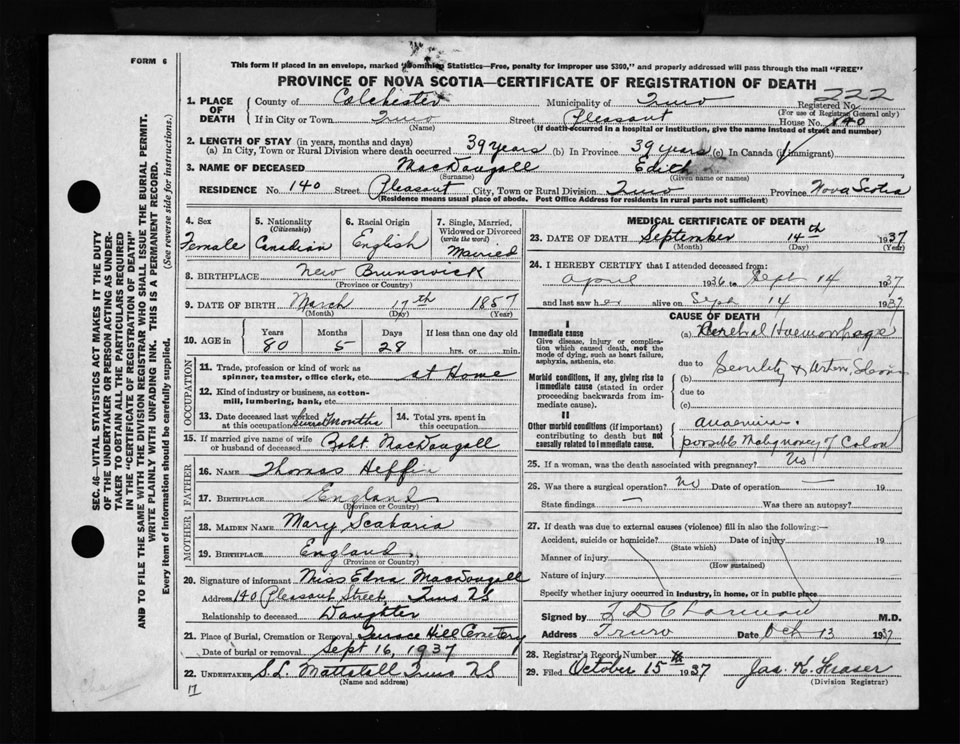 FORM 6
This form if placed in an envelope, marked "Dominion Statistics—Free, penalty for improper use $300," and properly addressed will pass through the mail "FREE"
PROVINCE OF NOVA SCOTIA—CERTIFICATE OF REGISTRATION OF DEATH
222
1. PLACE OF DEATH
County of Colchester Municipality of Truro Registered No.
(For use of Registrar General only)
If in City or Town Truro Street Pleasant House No. 140
(Name) (If death occurred in a hospital or institution, give the name instead of street and number)
2. LENGTH OF STAY (in years, months and days)
(a) In City, Town or Rural Division where death occurred 39 years (b) In Province 39 years (c) In Canada (if immigrant)
3. NAME OF DECEASED MacDougall Edith
(Surname) (Given name or names)
RESIDENCE No. 140 Street Pleasant City, Town or Rural Division Truro Province Nova Scotia
(Residence means usual place of abode. Post Office Address for residents in rural parts not sufficient)
4. Sex Female
5. Nationality (Citizenship) Canadian
6. Racial Origin English
7. Single, Married, Widowed or Divorced (write the word) Married
8. BIRTHPLACE New Brunswick
(Province or Country)
9. DATE OF BIRTH March 17th 1857
(Month) (Day) (Year)
10. AGE in Years 80 Months 5 Days 28 If less than one day old hrs. or min.
OCCUPATION
11. Trade, profession or kind of work as spinner, teamster, office clerk, etc. at Home
12. Kind of industry or business, as cotton-mill, lumbering, bank, etc.
13. Date deceased last worked at this occupation Several Months
14. Total yrs. spent in this occupation
15. If married give name of wife or husband of deceased Robt. MacDougall
FATHER
16. NAME Thomas
17. BIRTHPLACE England
(Province or Country)
MOTHER
18. MAIDEN NAME Mary
19. BIRTHPLACE England
(Province or Country)
20. Signature of informant Miss Edna MacDougall
Address 140 Pleasant Street, Truro NS
Relationship to deceased Daughter
21. Place of Burial, Cremation or Removal Terrace Hill Cemetery
Date of burial or removal Sept 16, 1937
22. UNDERTAKER S.L. Mattatall Truro NS
(Name and address)
17
MEDICAL CERTIFICATE OF DEATH
23. DATE OF DEATH September 14th 1937
(Month) (Day) (Year)
24. I HEREBY CERTIFY that I attended deceased from:
April 1936 to Sept 14 1937
and last saw her alive on Sept 14 1937
CAUSE OF DEATH
I
Immediate cause
Give disease, injury or complication which caused death, not the mode of dying, such as heart failure, asphyxia, asthenia, etc.
(a) Cerebral Haemorrhage
due to
Morbid conditions, if any, giving rise to immediate cause (stated in order proceeding backwards from immediate cause).
(b) Senility &
due to
(c)
II
Other morbid conditions (if important) contributing to death but not causally related to immediate cause.
possible Malignancy of Colon
25. If a woman, was the death associated with pregnancy? No
26. Was there a surgical operation? No Date of operation — 19
State findings — Was there an autopsy?
27. If death was due to external causes (violence) fill in also the following:—
Accident, suicide or homicide? Date of injury 19
(State which)
Manner of injury
(How sustained)
Nature of injury
Specify whether injury occurred in industry, in home, or in public place
Signed by M.D.
Address Truro Date Oct 13 1937
28. Registrar's Record Number
29. Filed October 15 1937 Jas. K. Fraser
(Division Registrar)
SEC. 46—VITAL STATISTICS ACT MAKES IT THE DUTY
OF THE UNDERTAKER OR PERSON ACTING AS UNDER-
TAKER TO OBTAIN ALL THE PARTICULARS REQUIRED
IN THE "CERTIFICATE OF REGISTRATION OF DEATH"
AND TO FILE THE SAME WITH THE DIVISION REGISTRAR WHO SHALL ISSUE THE BURIAL PERMIT.
WRITE PLAINLY WITH UNFADING INK. THIS IS A PERMANENT RECORD.
Every item of information should be carefully supplied. (See reverse side for instructions.)